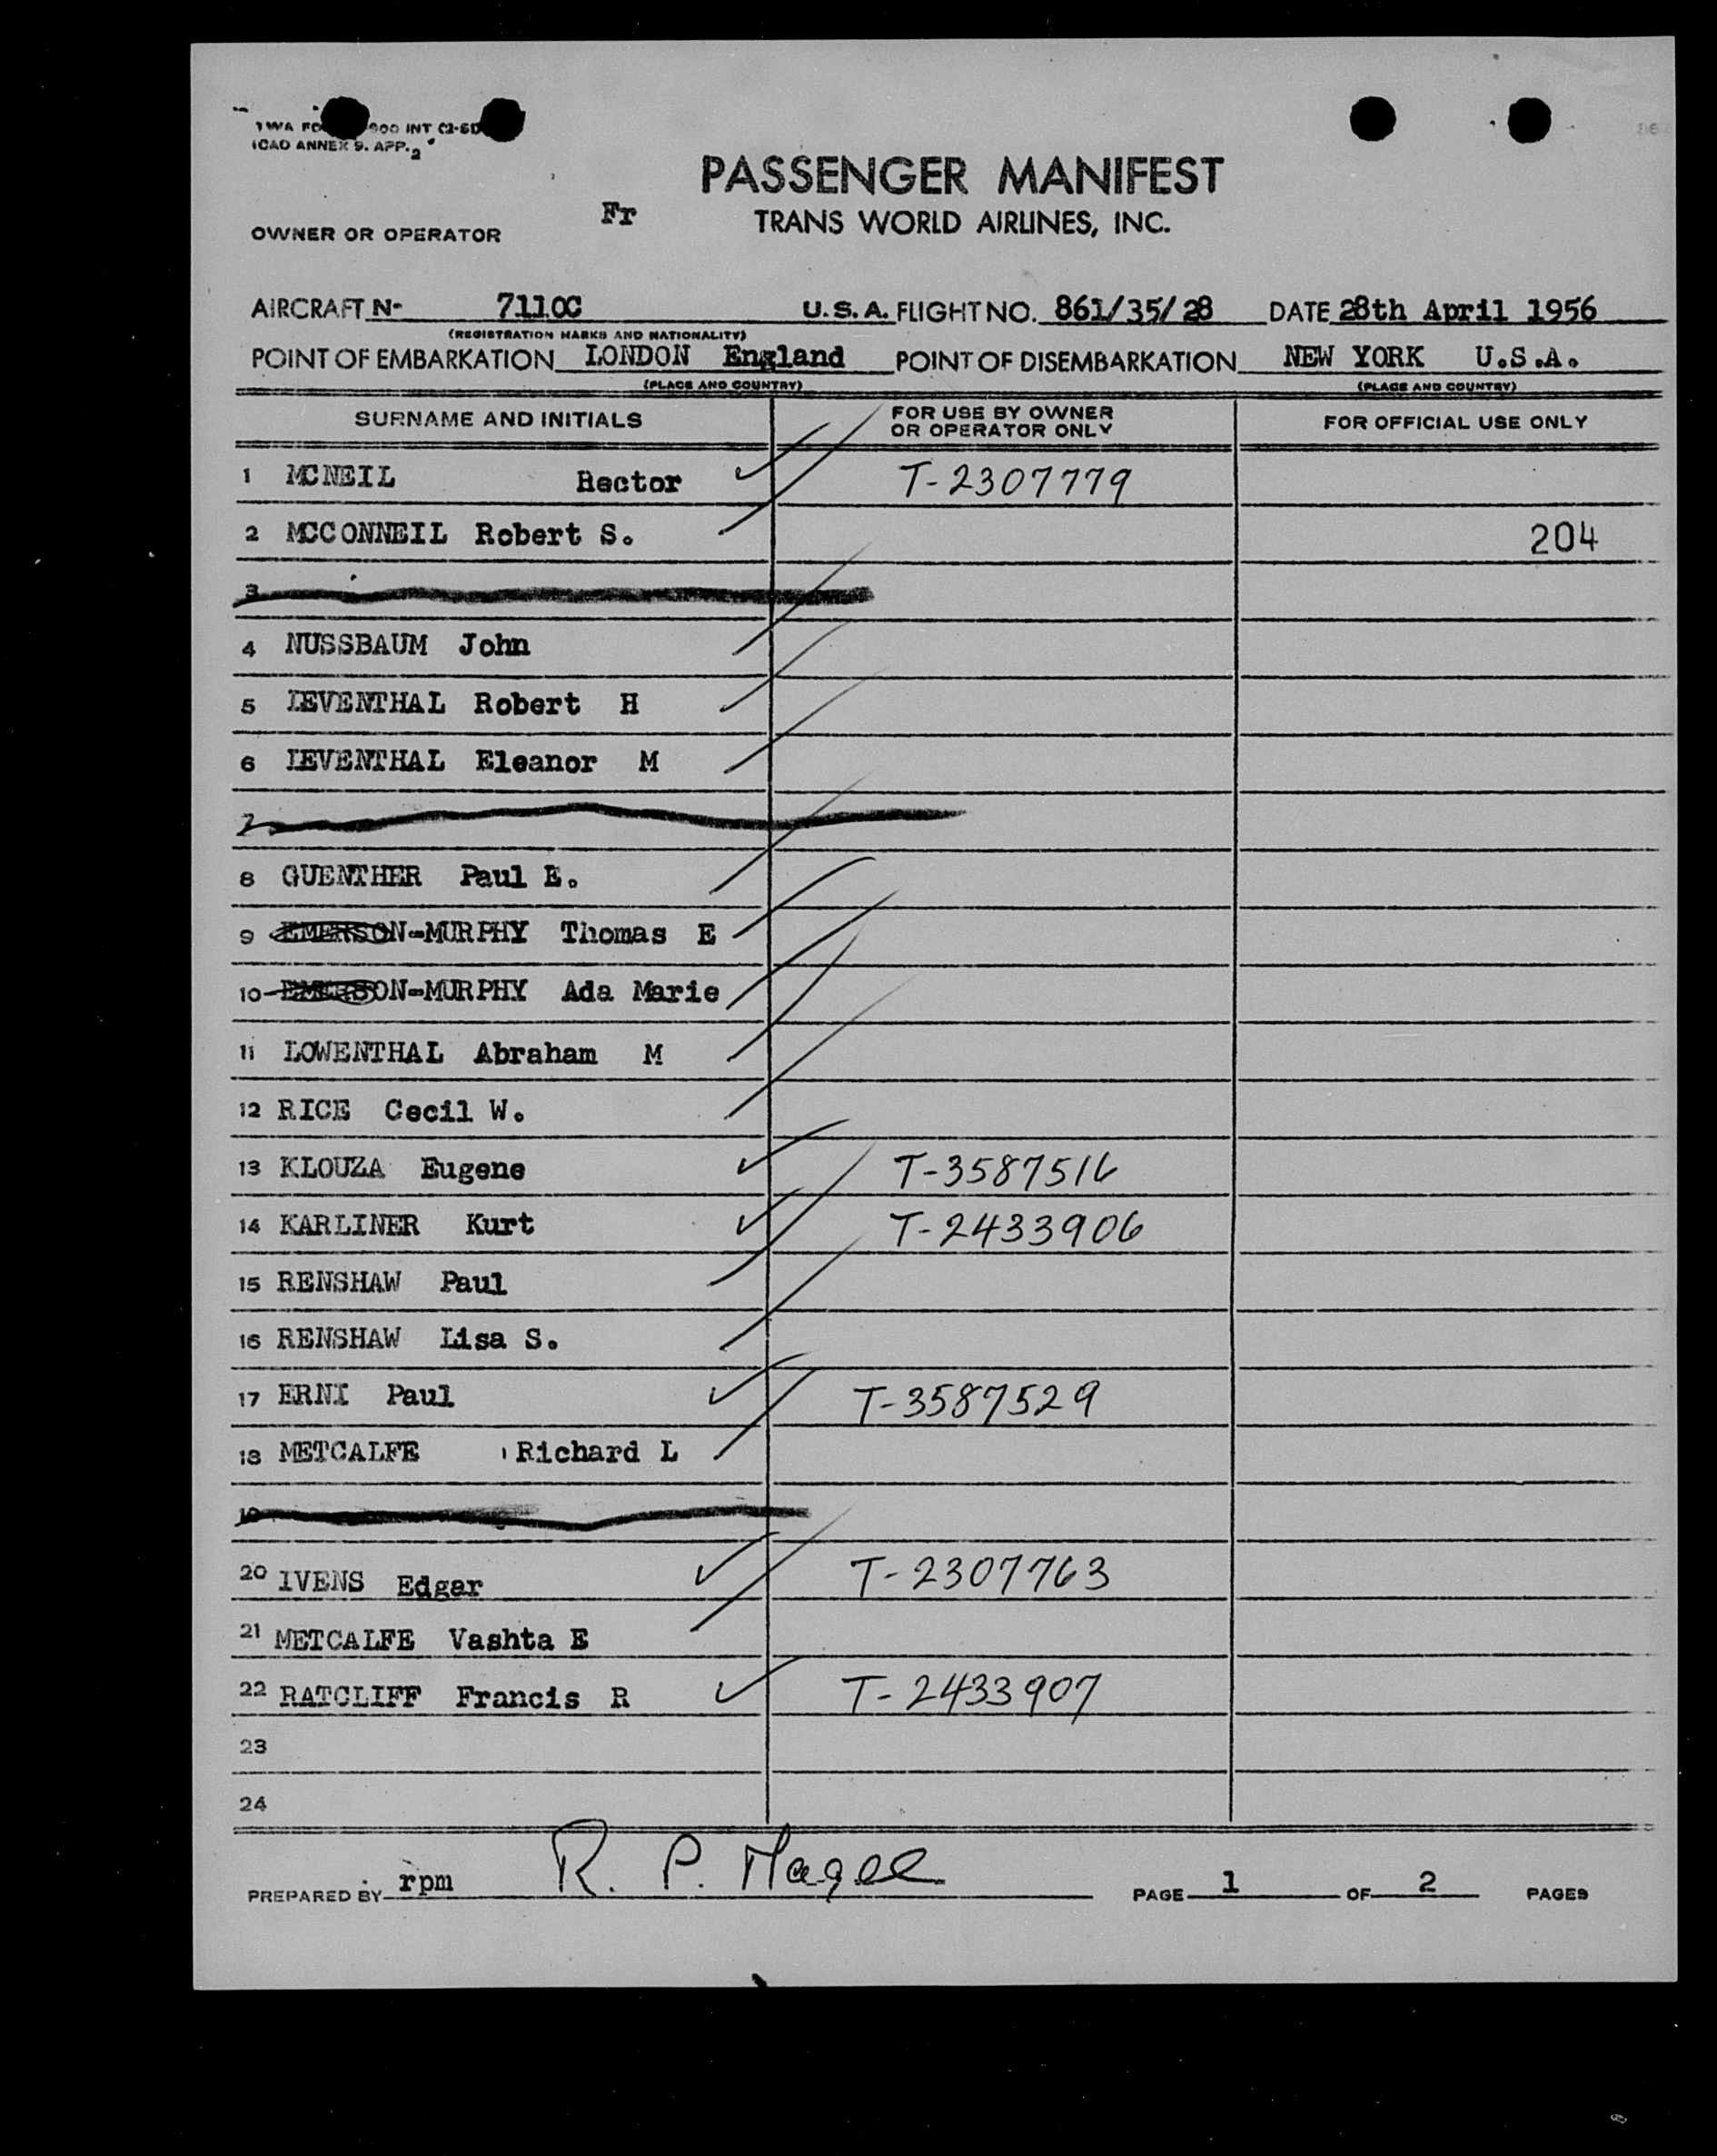 TWA FO 900 INT C2-SD
ICAO ANNEX 9. APP. 2
PASSENGER MANIFEST
Fr
TRANS WORLD AIRLINES, INC.
OWNER OR OPERATOR
AIRCRAFT N- 7110C U.S.A. FLIGHT NO. 861/35/28 DATE 28th April 1956
(REGISTRATION MARKS AND NATIONALITY)
POINT OF EMBARKATION LONDON England POINT OF DISEMBARKATION NEW YORK U.S.A.
(PLACE AND COUNTRY) (PLACE AND COUNTRY)
SURNAME AND INITIALS FOR USE BY OWNER OR OPERATOR ONLY FOR OFFICIAL USE ONLY
1 MCNEIL Hector T-2307779
2 MCCONNEIL Robert S. 204
3
4 NUSSBAUM John
5 LEVENTHAL Robert H
6 LEVENTHAL Eleanor M
7
8 GUENTHER Paul E.
9 EMERSON-MURPHY Thomas E
10 EMERSON-MURPHY Ada Marie
11 LOWENTHAL Abraham M
12 RICE Cecil W.
13 KLOUZA Eugene T-3587516
14 KARLINER Kurt T-2433906
15 RENSHAW Paul
16 RENSHAW Lisa S.
17 ERNI Paul T-3587529
18 METCALFE Richard L
19
20 IVENS Edgar T-2307763
21 METCALFE Vashta E
22 RATCLIFF Francis R T-2433907
23
24
PREPARED BY rpm R. P. Magee PAGE 1 OF 2 PAGES